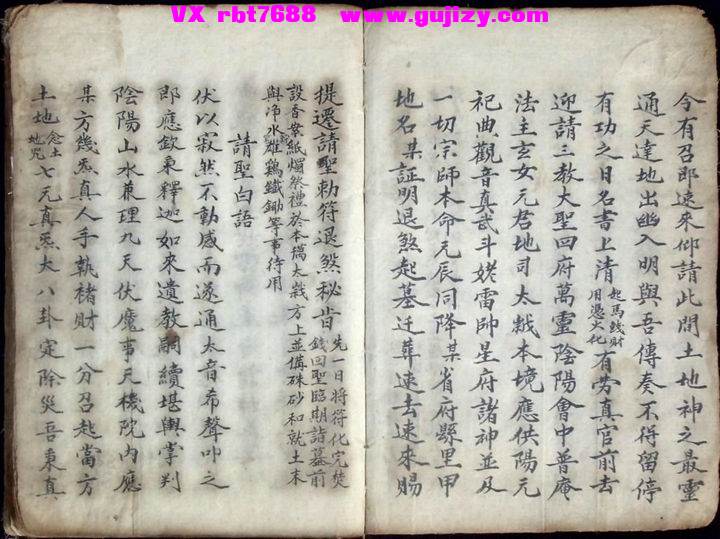 VX rbt7688 www.gujizy.com
今有召即速來仰請此間土地神之最靈
通天達地出幽入明與吾傳奏不得留停
有功之日名書上清起馬錢財用憑火化有勞真官前去
迎請三教大聖四府萬靈陰陽會中普庵
法主玄女元君地司太歲本境應供陽元
祀典觀音真武斗姥雷帥星府諸神並及
一切宗師本命元辰同降某省府縣里甲
地名某証明退煞起墓迁葬速去速來賜
提遷請聖勅符退煞秘旨先一日將符化完焚錢回聖臨期詣墓前
設香案紙燭祭禮於本墳太歲方上並備硃砂和就土末
與净水雄鷄鐵鋤等事待用
請聖白語
伏以寂然不動感而遂通太音希聲叩之
即應欽秉釋迦如來遺教嗣續堪輿掌判
陰陽山水兼理九天伏魔事天機院內應
某方幾炁真人手執褚財一分召起當方
土地念土地咒七元真炁太八卦定除災吾秉真